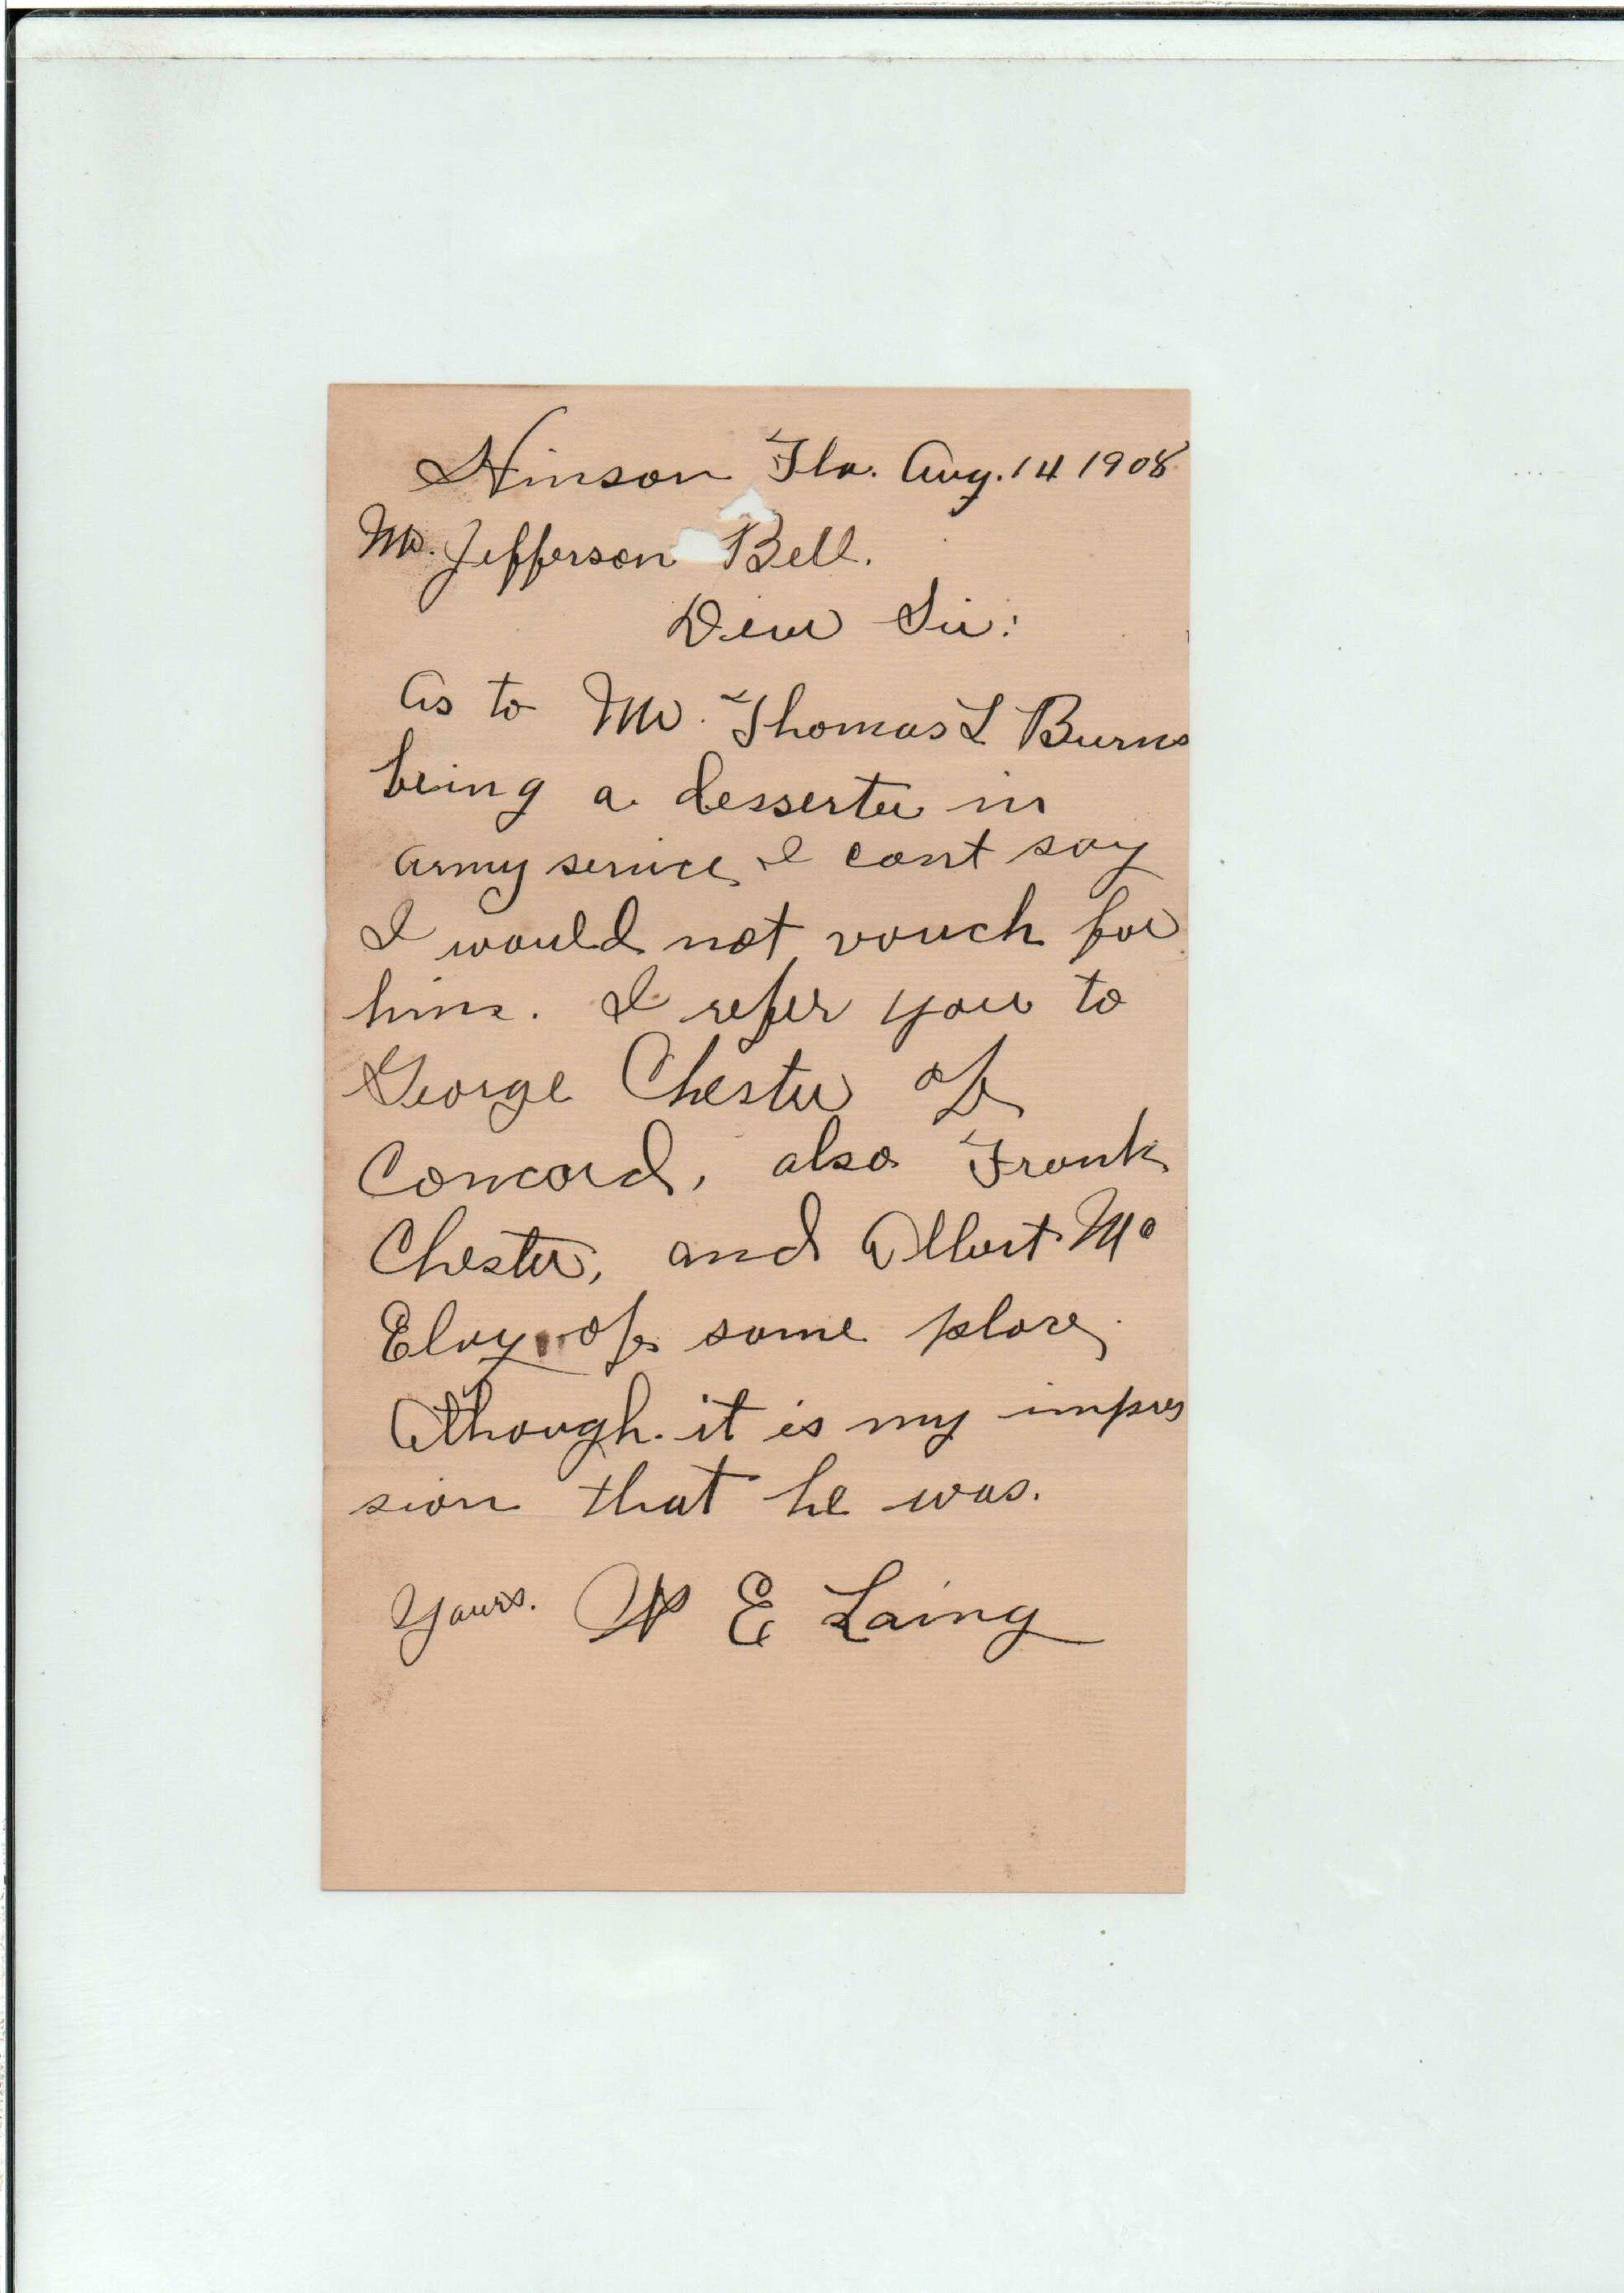 Hinson Fla. Aug. 14 1908
Mr. Jefferson Bell.
Dear Sir:
As to Mr. Thomas L Burns
being a desserter in
army service I cant say
I would not vouch for
him. I refer you to
George Chester of
Concord, also Frank
Chester, and Albert Mc
Elvy of same place,
Although it is my impres
sion that he was.
Yours. W E Laing